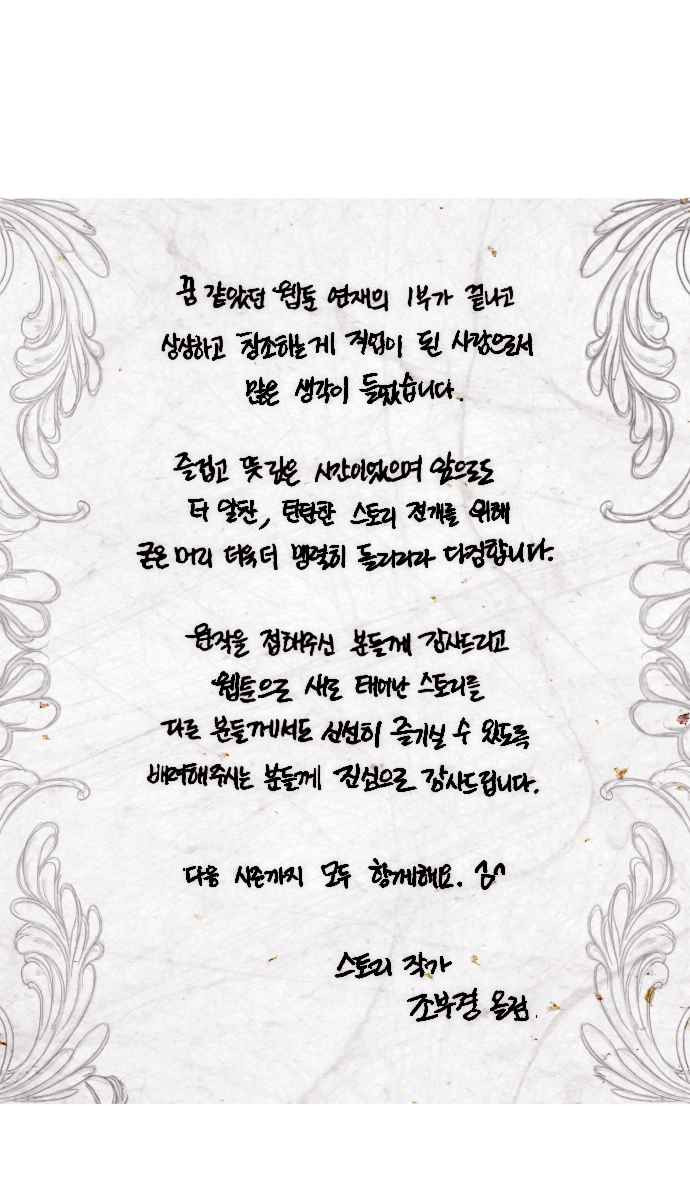 꿈 같았던 웹툰 연재의 1부가 끝나고
상상하고 창조하는게 직업이 된 사람으로서
많은 생각이 들었습니다.
즐겁고 뜻 깊은 시간이었으며 앞으로도
더 알찬, 탄탄한 스토리 전개를 위해
굳은 머리 더욱 더 맹렬히 돌리리라 다짐합니다.
원작을 접해주신 분들께 감사드리고
웹툰으로 새로 태어난 스토리를
다른 분들께서도 신선히 즐기실 수 있도록
배려해주시는 분들께 진심으로 감사드립니다.
다음 시즌까지 모두 함께해요. ^^
스토리 작가
조부경 올림.